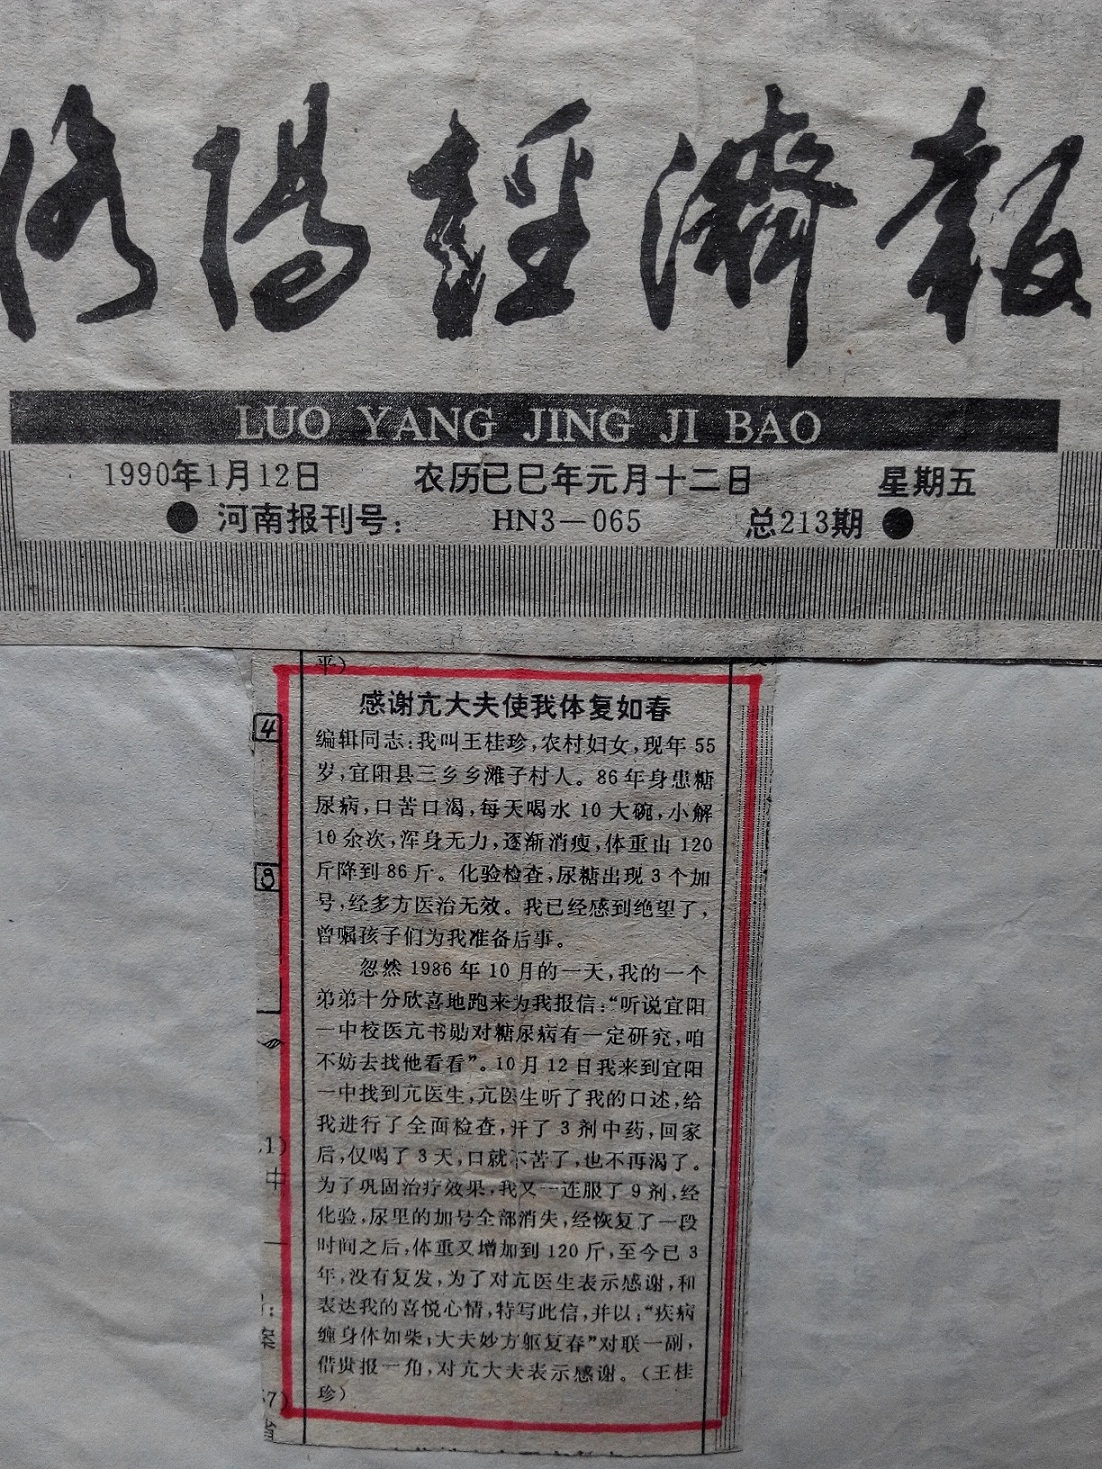 洛陽經濟報
LUO YANG JING JI BAO
1990年1月12日 农历已巳年元月十二日 星期五
● 河南报刊号： HN3—065 总213期 ●
平）
感谢亢大夫使我体复如春
编辑同志：我叫王桂珍，农村妇女，现年55
岁，宜阳县三乡乡滩子村人。86年身患糖
尿病，口苦口渴，每天喝水10大碗，小解
10余次，浑身无力，逐渐消瘦，体重由120
斤降到86斤。化验检查，尿糖出现3个加
号，经多方医治无效。我已经感到绝望了，
曾嘱孩子们为我准备后事。
忽然1986年10月的一天，我的一个
弟弟十分欣喜地跑来为我报信：“听说宜阳
一中校医亢书勋对糖尿病有一定研究，咱
不妨去找他看看”。10月12日我来到宜阳
一中找到亢医生，亢医生听了我的口述，给
我进行了全面检查，开了3剂中药，回家
后，仅喝了3天，口就不苦了，也不再渴了。
为了巩固治疗效果，我又一连服了9剂，经
化验，尿里的加号全部消失，经恢复了一段
时间之后，体重又增加到120斤，至今已3
年，没有复发，为了对亢医生表示感谢，和
表达我的喜悦心情，特写此信，并以：“疾病
缠身体如柴；大夫妙方躯复春”对联一副，
借贵报一角，对亢大夫表示感谢。（王桂
珍）
4
8
1）
中
案
57）
省